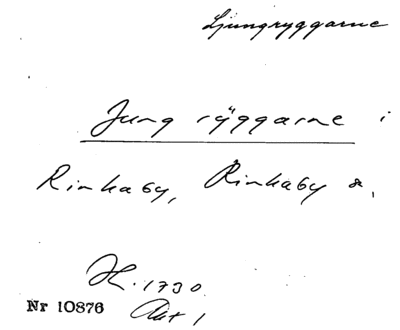 Ljungryggarne
Jung ryggarne i
Rinkaby, Rinkaby s.
H. 1730.
Nr 10876 Akt 1